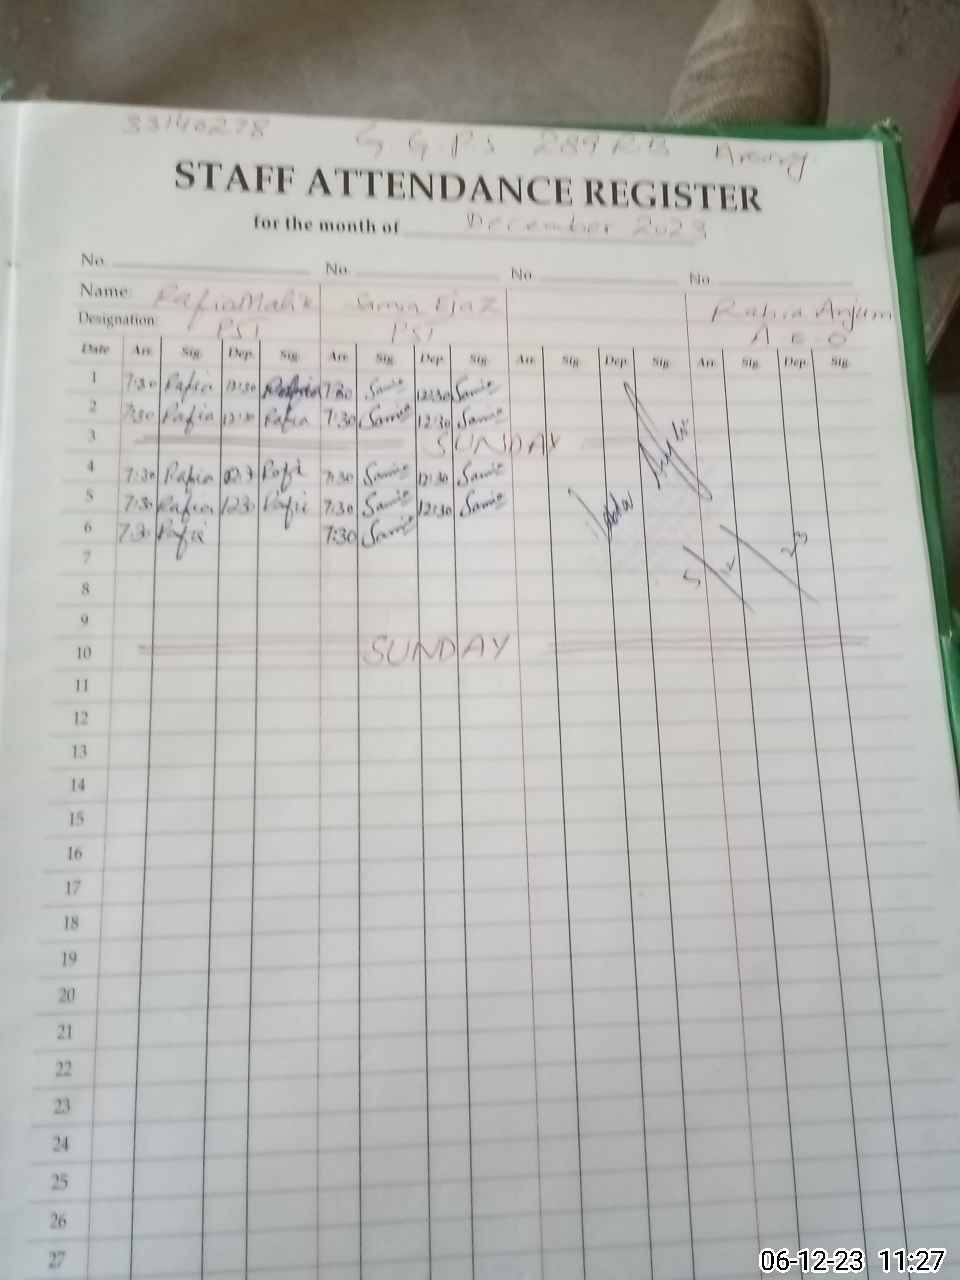 33140278 G G P S 289 RB
STAFF ATTENDANCE REGISTER
for the month of December 2023
No. No. No. No.
Name: Rafia Malik Samia Ejaz Rafia Anjum
Designation: PST PST A E O
Date Arr. Sig. Dep. Sig. Arr. Sig. Dep. Sig. Arr. Sig. Dep. Sig. Arr. Sig. Dep. Sig.
1 7:30 Rafia 12:30 Rafia 7:30 Samia 12:30 Samia
2 7:30 Rafia 12:30 Rafia 7:30 Samia 12:30 Samia
3 SUNDAY
4 7:30 Rafia Rafi 7:30 Samia 12:30 Samia
5 7:30 Rafia 1230 Rafi 7:30 Samia 12:30 Samia
6 7:30 Rafia 7:30 Samia
5/12/23
7
8
9
10 SUNDAY
11
12
13
14
15
16
17
18
19
20
21
22
23
24
25
26
27
06-12-23 11:27